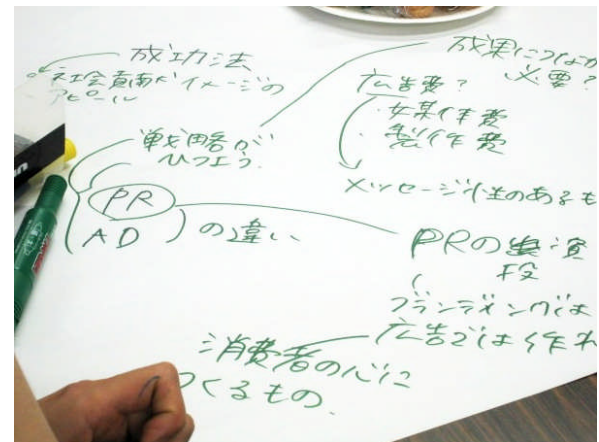 成功法
社会貢献イメージの
アピール
成果につなが
必要?
広告費?
・媒体費
・製作費
メッセージ性のあるも
戦略が
ひつよう
PR
AD
の違い
PRの
段
ブランディングは
広告では作れ
消費者の心に
つくるもの.